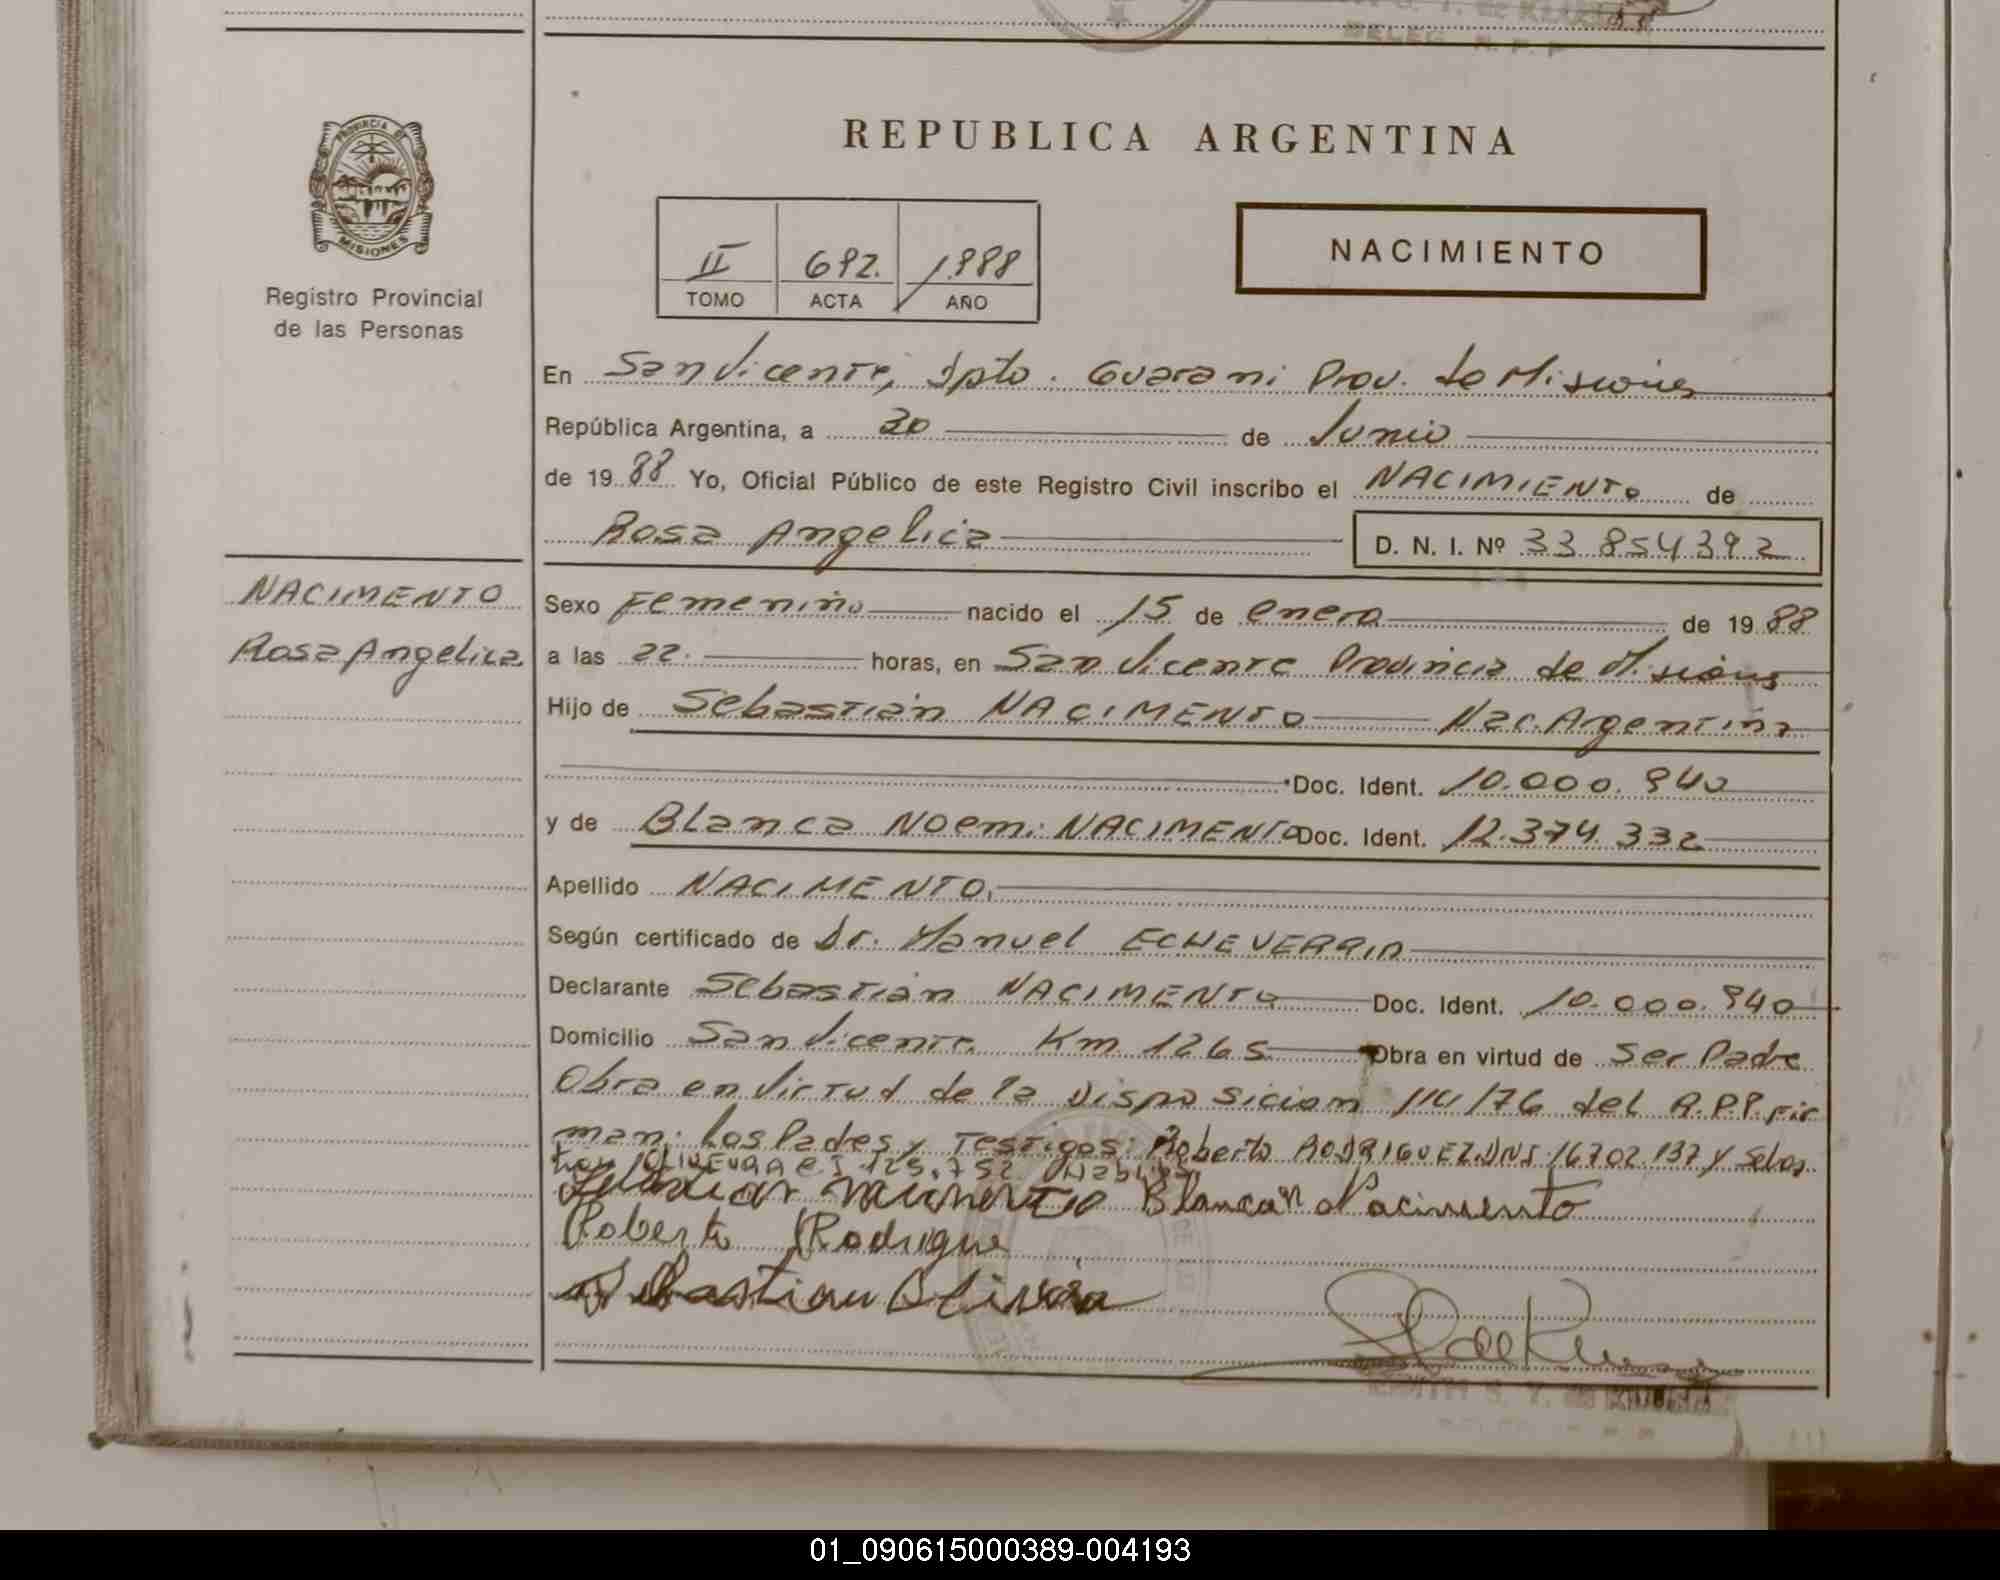 REPUBLICA ARGENTINA
PROVINCIA DE
MISIONES
Registro Provincial
de las Personas
II 692. 1988
TOMO ACTA AÑO
NACIMIENTO
En San Vicente, Dpto. Guarani Prov. de Misiones
República Argentina, a 20 de Junio
de 1988 Yo, Oficial Público de este Registro Civil inscribo el NACIMIENTO de
Rosa Angelica D. N. I. Nº 33 854392
NACIMENTO
Rosa Angelica
Sexo Femenino nacido el 15 de enero de 1988
a las 22. horas, en San Vicente Provincia de Misiones
Hijo de Sebastián NACIMENTO Nac. Argentina
Doc. Ident. 10.000.940
y de Blanca Noemi NACIMENTO Doc. Ident. 12.374.332
Apellido NACIMENTO.
Según certificado de Dr. Manuel ECHEVERRIA
Declarante Sebastián NACIMENTO Doc. Ident. 10.000.940
Domicilio San Vicente Km 1265 Obra en virtud de Ser Padre
Obra en Virtud de la Disposicion /76 del R.P.P. Fir
man: Los Pades y Testigos: Roberto RODRIGUEZ DNI 16702.137 y Sebas
tian OLIVEURA C.I. 125.752
Nacimento Blanca N Nacimento
Roberto Rodrigue
Sebastian
S. Y. de
01_090615000389-004193